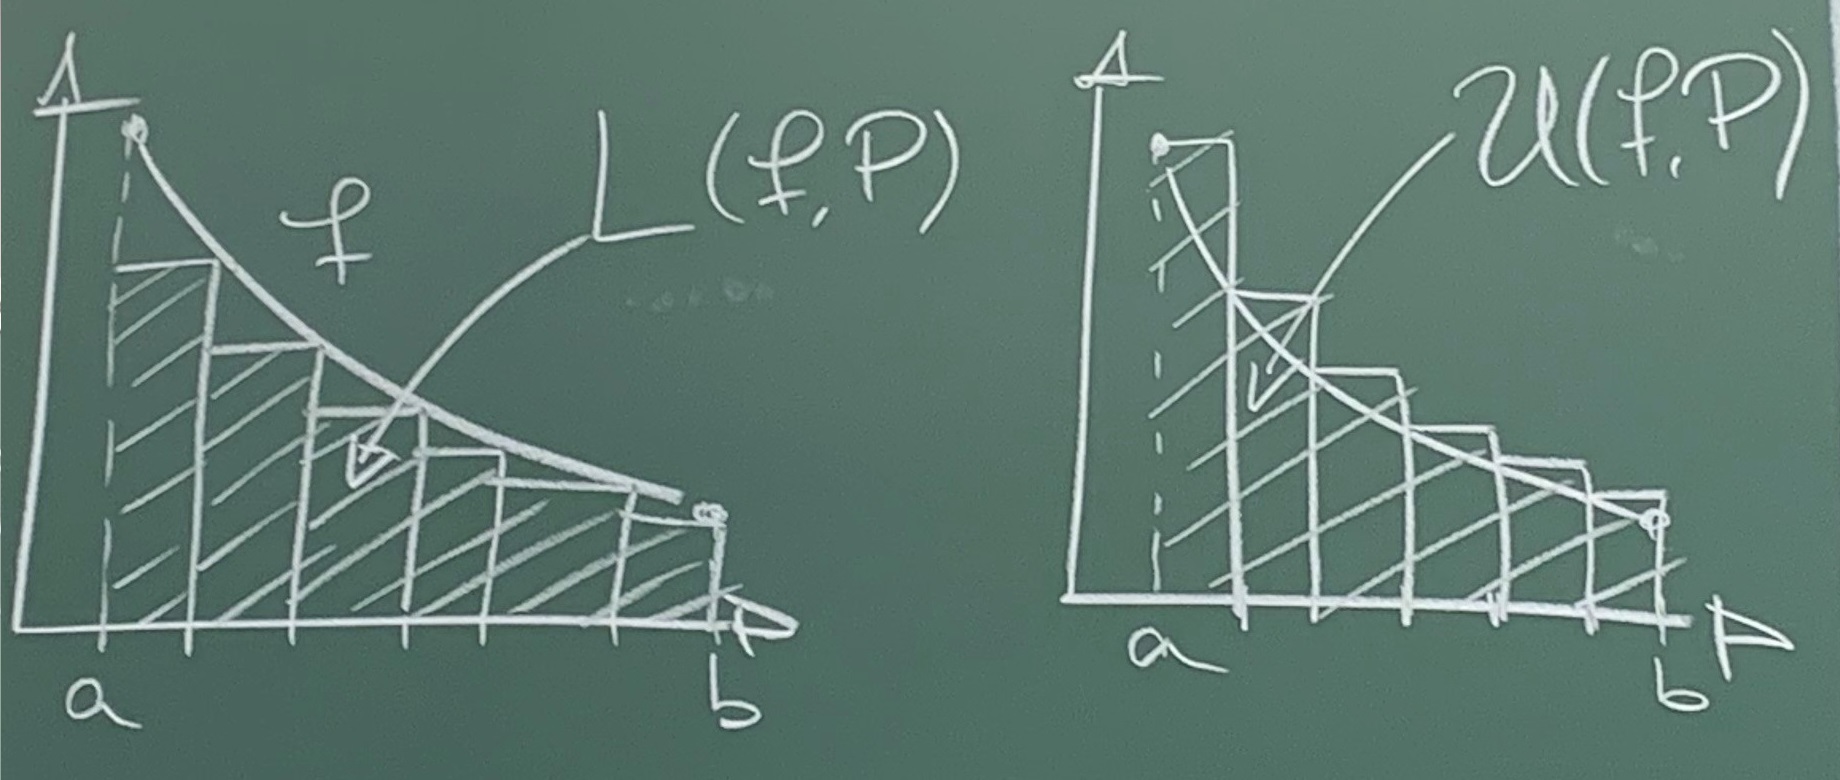 f
L(f,P)
a
b
U(f,P)
a
b